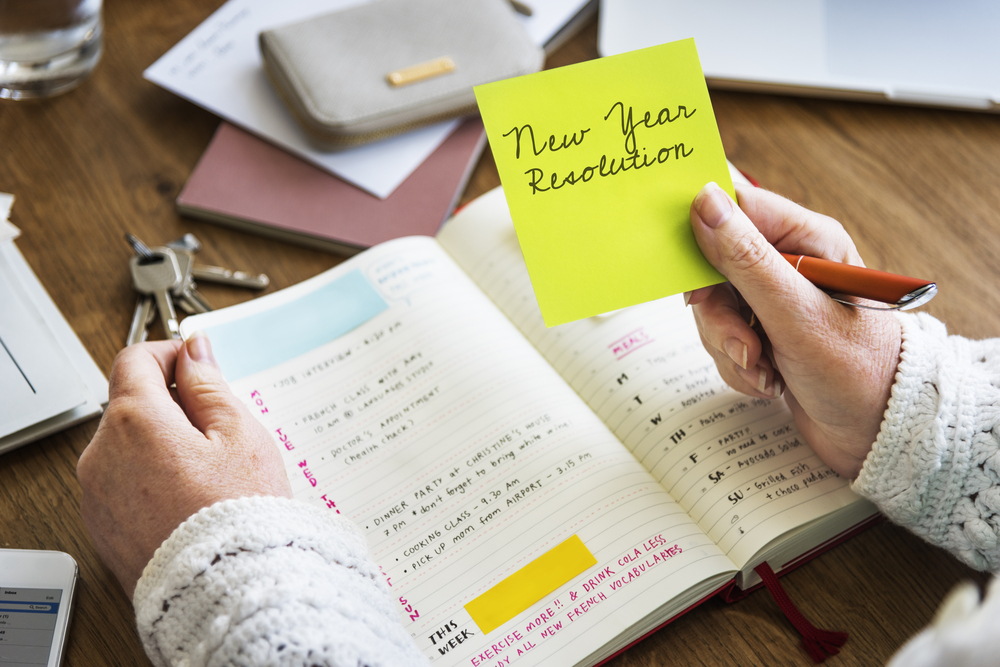 New Year
Resolution
JOB INTERVIEW - 4.30 PM
FRENCH CLASS WITH AMY
10 am @ LANGUAGES STUDIO
DOCTOR'S APPOINTMENT
(health check)
DINNER PARTY at CHRISTINE'S HOUSE
7 PM • don't forget to bring white wine
COOKING CLASS - 9.30 AM
PICK UP mom from AIRPORT - 3.15 PM
MON TUE WED TH
SUN
THIS
WEEK
EXERCISE MORE!! & DRINK COLA LESS
ALL NEW FRENCH VOCABULARIES
MEALS
M -
T - Roasted
W - Pasta with
TH - PARTY!
no need to cook
F -
SA - Avocado Salad
SU - Grilled Fish
+ choco pudding
Inbox